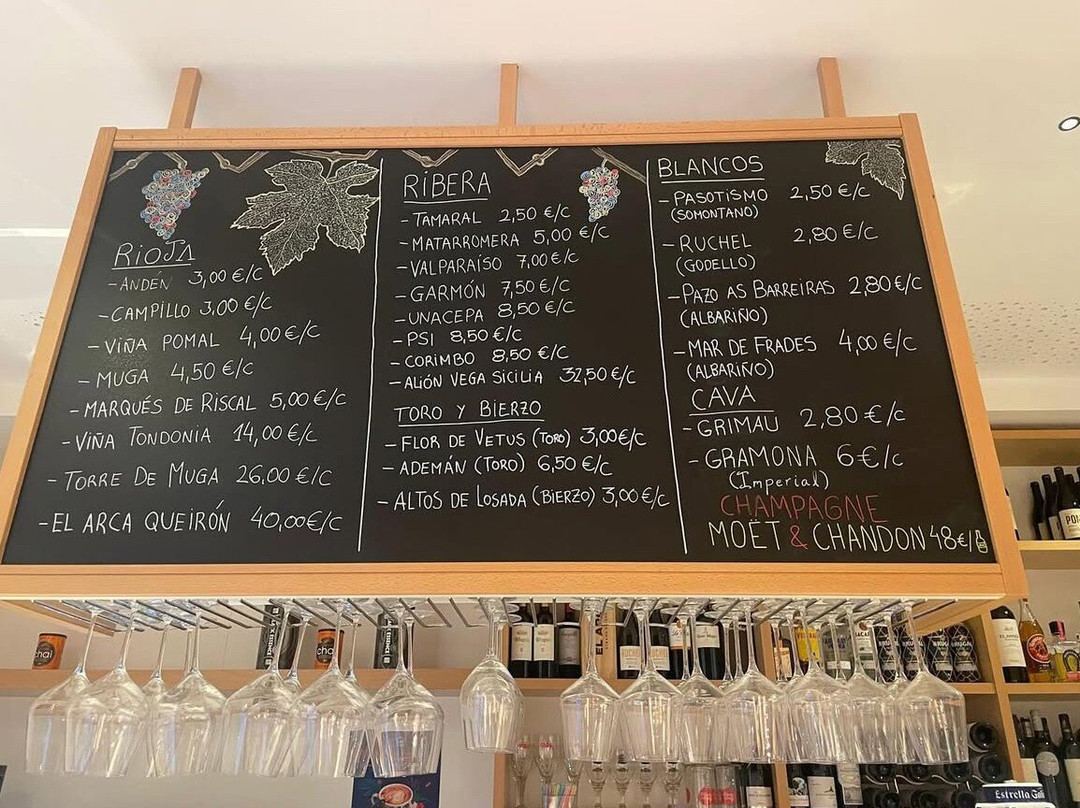 RIOJA
- ANDÉN 3,00 €/C
- CAMPILLO 3,00 €/C
- VIÑA POMAL 4,00 €/C
- MUGA 4,50 €/C
- MARQUÉS DE RISCAL 5,00 €/C
- VIÑA TONDONIA 14,00 €/C
- TORRE DE MUGA 26,00 €/C
- EL ARCA QUEIRÓN 40,00 €/C
RIBERA
- TAMARAL 2,50 €/C
- MATARROMERA 5,00 €/C
- VALPARAÍSO 7,00 €/C
- GARMÓN 7,50 €/C
- UNACEPA 8,50 €/C
- PSI 8,50 €/C
- CORIMBO 8,50 €/C
- ALIÓN VEGA SICILIA 32,50 €/C
TORO Y BIERZO
- FLOR DE VETUS (TORO) 3,00 €/C
- ADEMÁN (TORO) 6,50 €/C
- ALTOS DE LOSADA (BIERZO) 3,00 €/C
BLANCOS
- PASOTISMO 2,50 €/C
(SOMONTANO)
- RUCHEL 2,80 €/C
(GODELLO)
- PAZO AS BARREIRAS 2,80 €/C
(ALBARIÑO)
- MAR DE FRADES 4,00 €/C
(ALBARIÑO)
CAVA
- GRIMAU 2,80 €/C
- GRAMONA 6 €/C
(Imperial)
CHAMPAGNE
MOËT & CHANDON 48 €/
chai
Estrella Gali